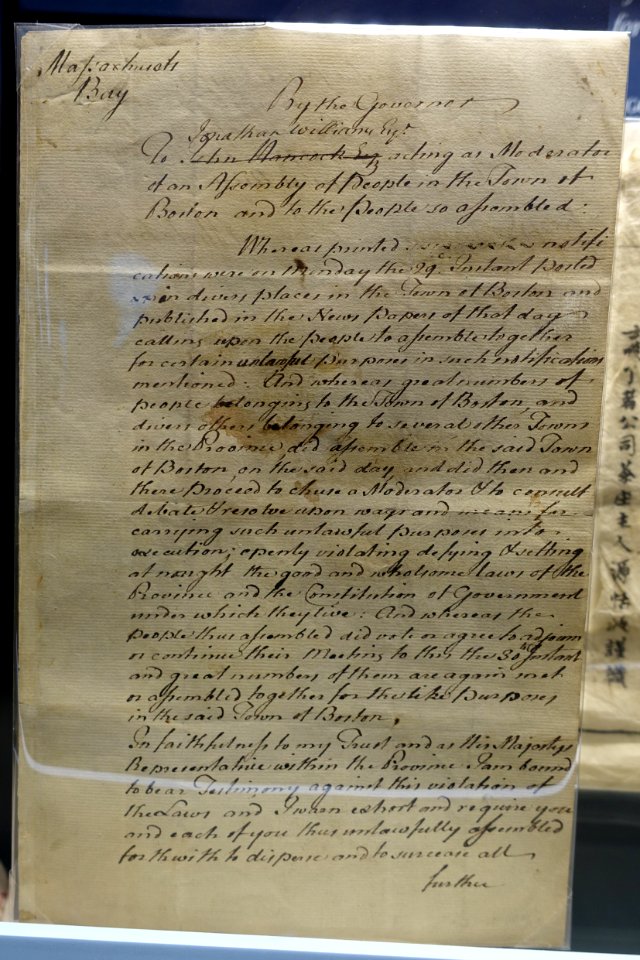 Massachusets
Bay
By the Governor
Jonathan Williams Esqr.
To John Hancock Esq acting as Moderator
of an Assembly of People in the Town of
Boston and to the People so assembled:
Whereas printed notifi
cations were on Munday the 29th Instant Posted
in divers places in the Town of Boston and
published in the News Papers of that day
calling upon the People to assemble together
for certain unlawful purposes in such notifications
mentioned: And whereas great numbers of
people belonging to the Town of Boston, and
divers others belonging to several other Towns
in the Province did assemble in the said Town
of Boston, on the said day, and did then and
there proceed to chuse a Moderator & to consult
debate & resolve upon ways and means for
carrying such unlawful purposes into
execution; openly violating defying & setting
at nought the good and wholsome laws of the
Province and the Constitution of Government
under which they live: And whereas the
people thus assembled did vote or agree to adjourn
or continue their Meeting to this the 30th Instant
and great numbers of them are again met
or assembled together for the like purposes
in the said Town of Boston,
In faithfulness to my Trust and as His Majestys
Representative within the Province I am bound
to bear Testimony against this violation of
the Laws and I warn exhort and require you
and each of you thus unlawfully assembled
forthwith to disperse and to surcease all
further
公司茶庄主人